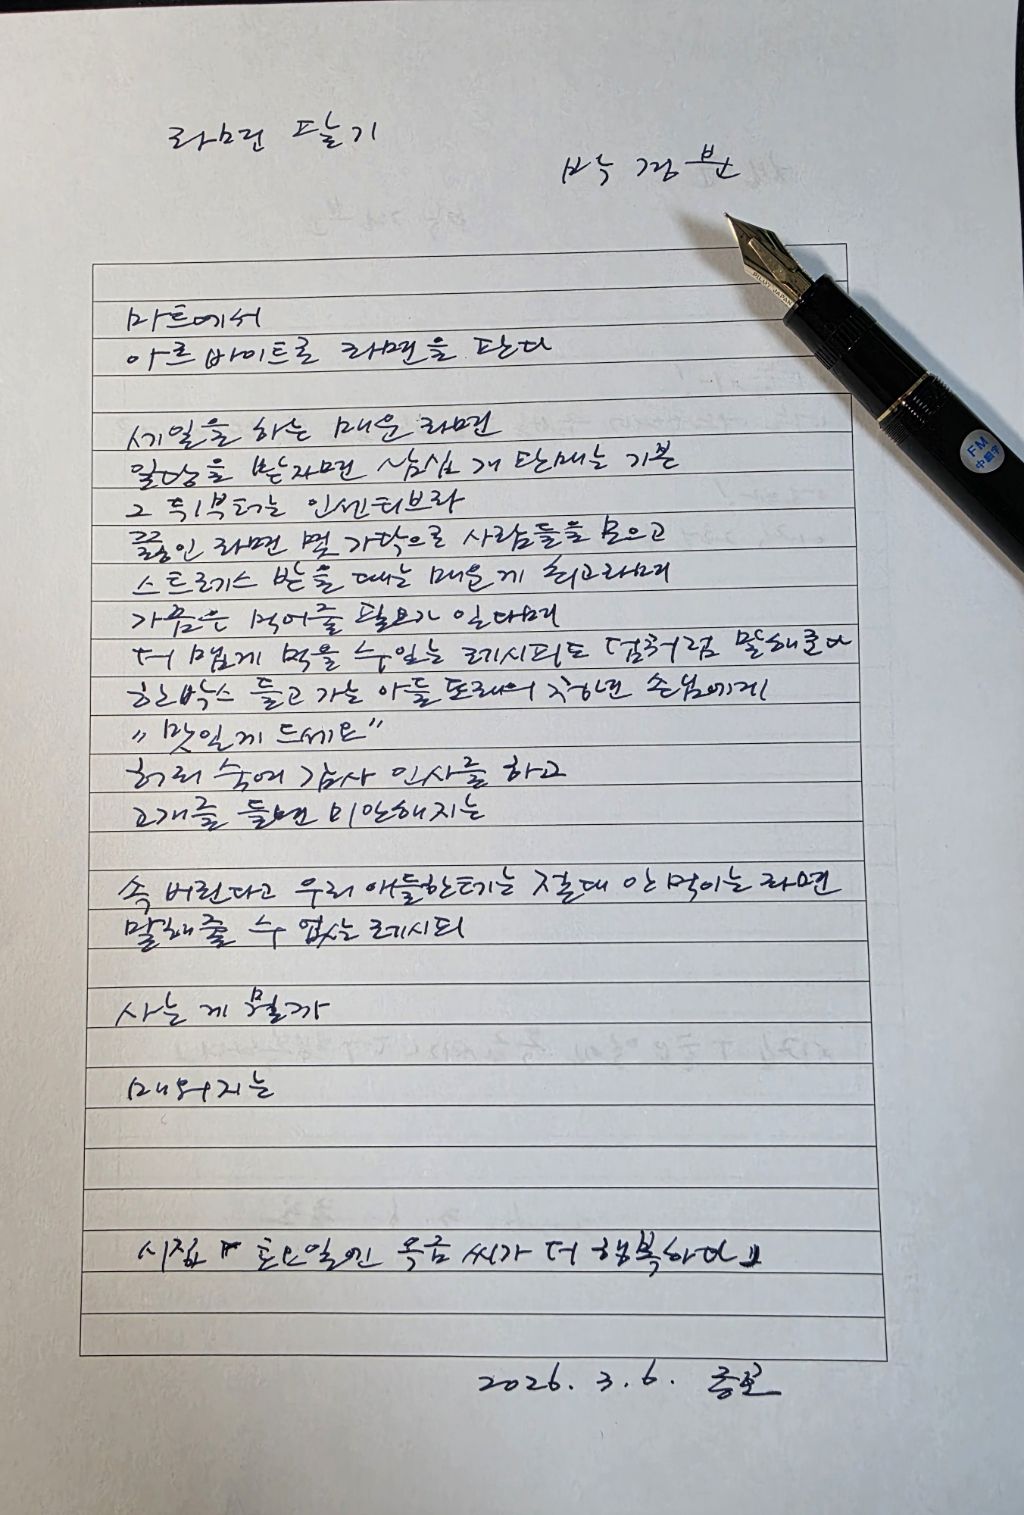 라면 팔기
박경분
마트에서
아르바이트로 라면을 판다
세일을 하는 매운 라면
일당을 받자면 삼십 개 판매는 기본
그 뒤부터는 인센티브라
끓인 라면 몇 가닥으로 사람들을 모으고
스트레스 받을 때는 매운 게 최고라며
가끔은 먹어줄 필요가 있다며
더 맵게 먹을 수 있는 레시피도 덤처럼 말해준다
한 박스 들고 가는 아들 또래의 착한 손님에게
"맛있게 드세요"
허리 숙여 감사 인사를 하고
고개를 들면 미안해지는
속 버린다고 우리 애들한테는 절대 안 먹이는 라면
말해줄 수 없는 레시피
사는 게 뭘까
매워지는
시집 『토요일엔 옥금 씨가 더 행복하다』
2026. 3. 6.
FM
中細字
PILOT JAPAN